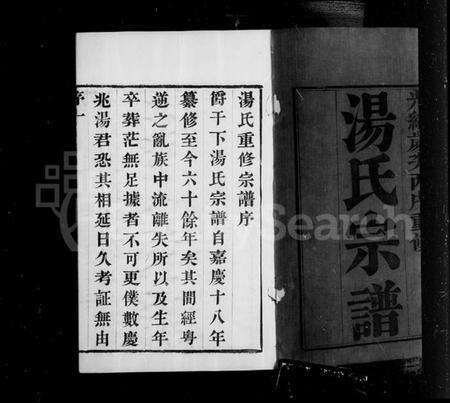 湯氏宗譜
湯氏重修宗譜序
爵干下湯氏宗譜自嘉慶十八年
纂修至今六十餘年矣其間經粵
逆之亂族中流離失所以及生年
卒葬茫無足據者不可更僕數慶
兆湯君恐其相延日久考証無由
序一